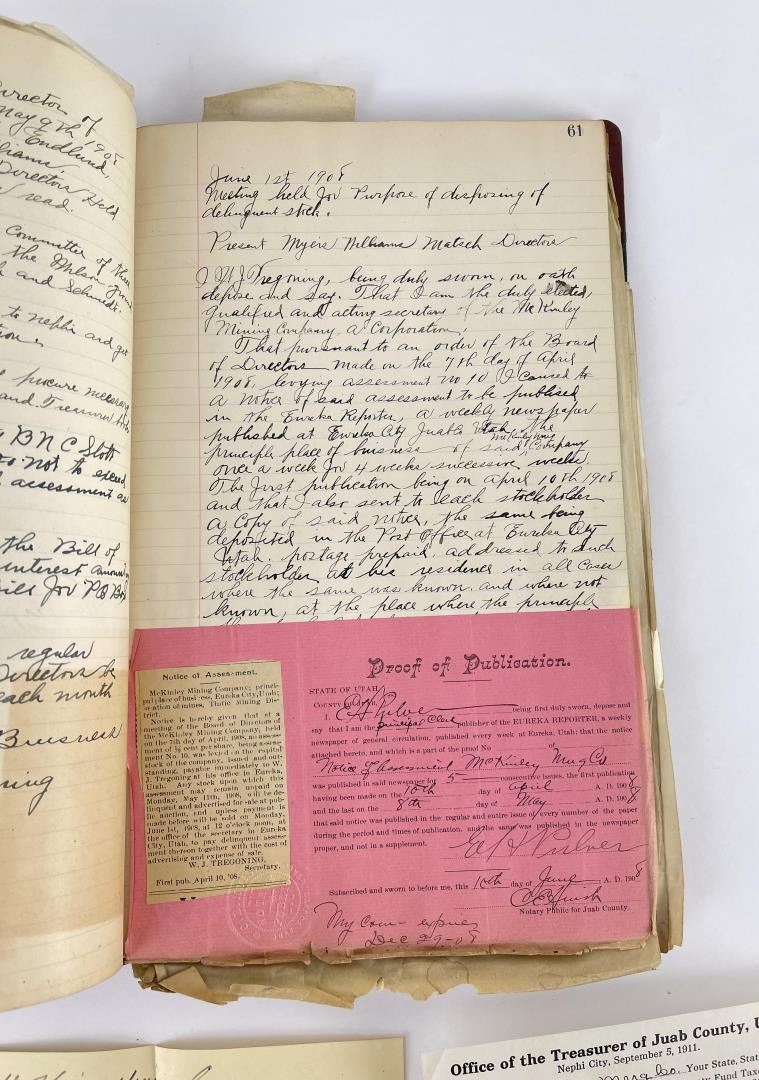 Director of
May 9th 1908
Endlund,
Williams
Director Held
read.
Committee of three
the Wilson
and Schmidt.
to nephi and get
procure necessary
B N C Stott
not to exceed
assessment as
the Bill of
interest
for P.O. Box
regular
Directors be
each month
Buisness
61
June 1st 1908
Meeting held for Purpose of disposing of
delinquent stock.
Present Myers Williams Matsch Directors
I W J Tregoning, being duly sworn, on oath
depose and say. That I am the duly elected,
qualified and acting secretary of the McKinley
Mining Company a Corporation,
That pursuant to an order of the Board
of Directors made on the 7th day of April
1908, levying assessment no 10 I caused to
a notice of said assessment to be publised
in the Eureka Reporter, a weekly newspaper
published at Eureka City Juab Co Utah, the
principle place of buisness of said McKinley Mning Company
once a week for 4 weeks successive weeks
The first publication being on April 10th 1908
and that I also sent to each stockholder
a copy of said notice, the same being
deposited in the Post Office at Eureka City
Utah. postage prepaid. addressed to such
stockholder at his residence in all cases
where the same was known. and where not
known, at the place where the principle
Notice of Assessment.
McKinley Mining Company; princi-
pal place of business, Eureka City, Utah;
location of mines, Tintic Mining Dis-
trict.
Notice is hereby given that at a
meeting of the Board of Directors of
the McKinley Mining Company, held
on the 7th day of April, 1908, an assess-
ment of ½ cent per share, being assess-
ment No. 10, was levied on the capital
stock of the company, issued and out-
standing, payable immediately to W.
J. Tregoning at his office in Eureka,
Utah. Any stock upon which this
assessment may remain unpaid on
Monday, May 11th, 1908, will be de-
linquent and advertised for sale at pub-
lic auction, and unless payment is
made before will be sold on Monday,
June 1st, 1908, at 12 o'clock noon, at
the office of the secretary in Eureka
City, Utah, to pay delinquent assess-
ment thereon together with the cost of
advertising and expense of sale.
W. J. TREGONING,
Secretary.
First pub. April 10, '08.
Proof of Publication.
STATE OF UTAH
COUNTY OF JUAB
I, being first duly sworn, depose and
say that I am the principal Clerk publisher of the EUREKA REPORTER, a weekly
newspaper of general circulation, published every week at Eureka, Utah; that the notice
attached hereto, and which is a part of the proof No of
Notice of assessment McKinley Mng Co
was published in said newspaper for 5 consecutive issues, the first publication
having been made on the 10th day of April A. D. 1908
and the last on the 8th day of May A. D. 1908
that said notice was published in the regular and entire issue of every number of the paper
during the period and times of publication, and the same was published in the newspaper
proper, and not in a supplement.
Subscribed and sworn to before me, this 10th day of June A. D. 1908
Notary Public for Juab County.
My com- expires
Dec 29-08
Office of the Treasurer of Juab County, U
Nephi City, September 5, 1911.
Your State, Stat
Fund Taxe